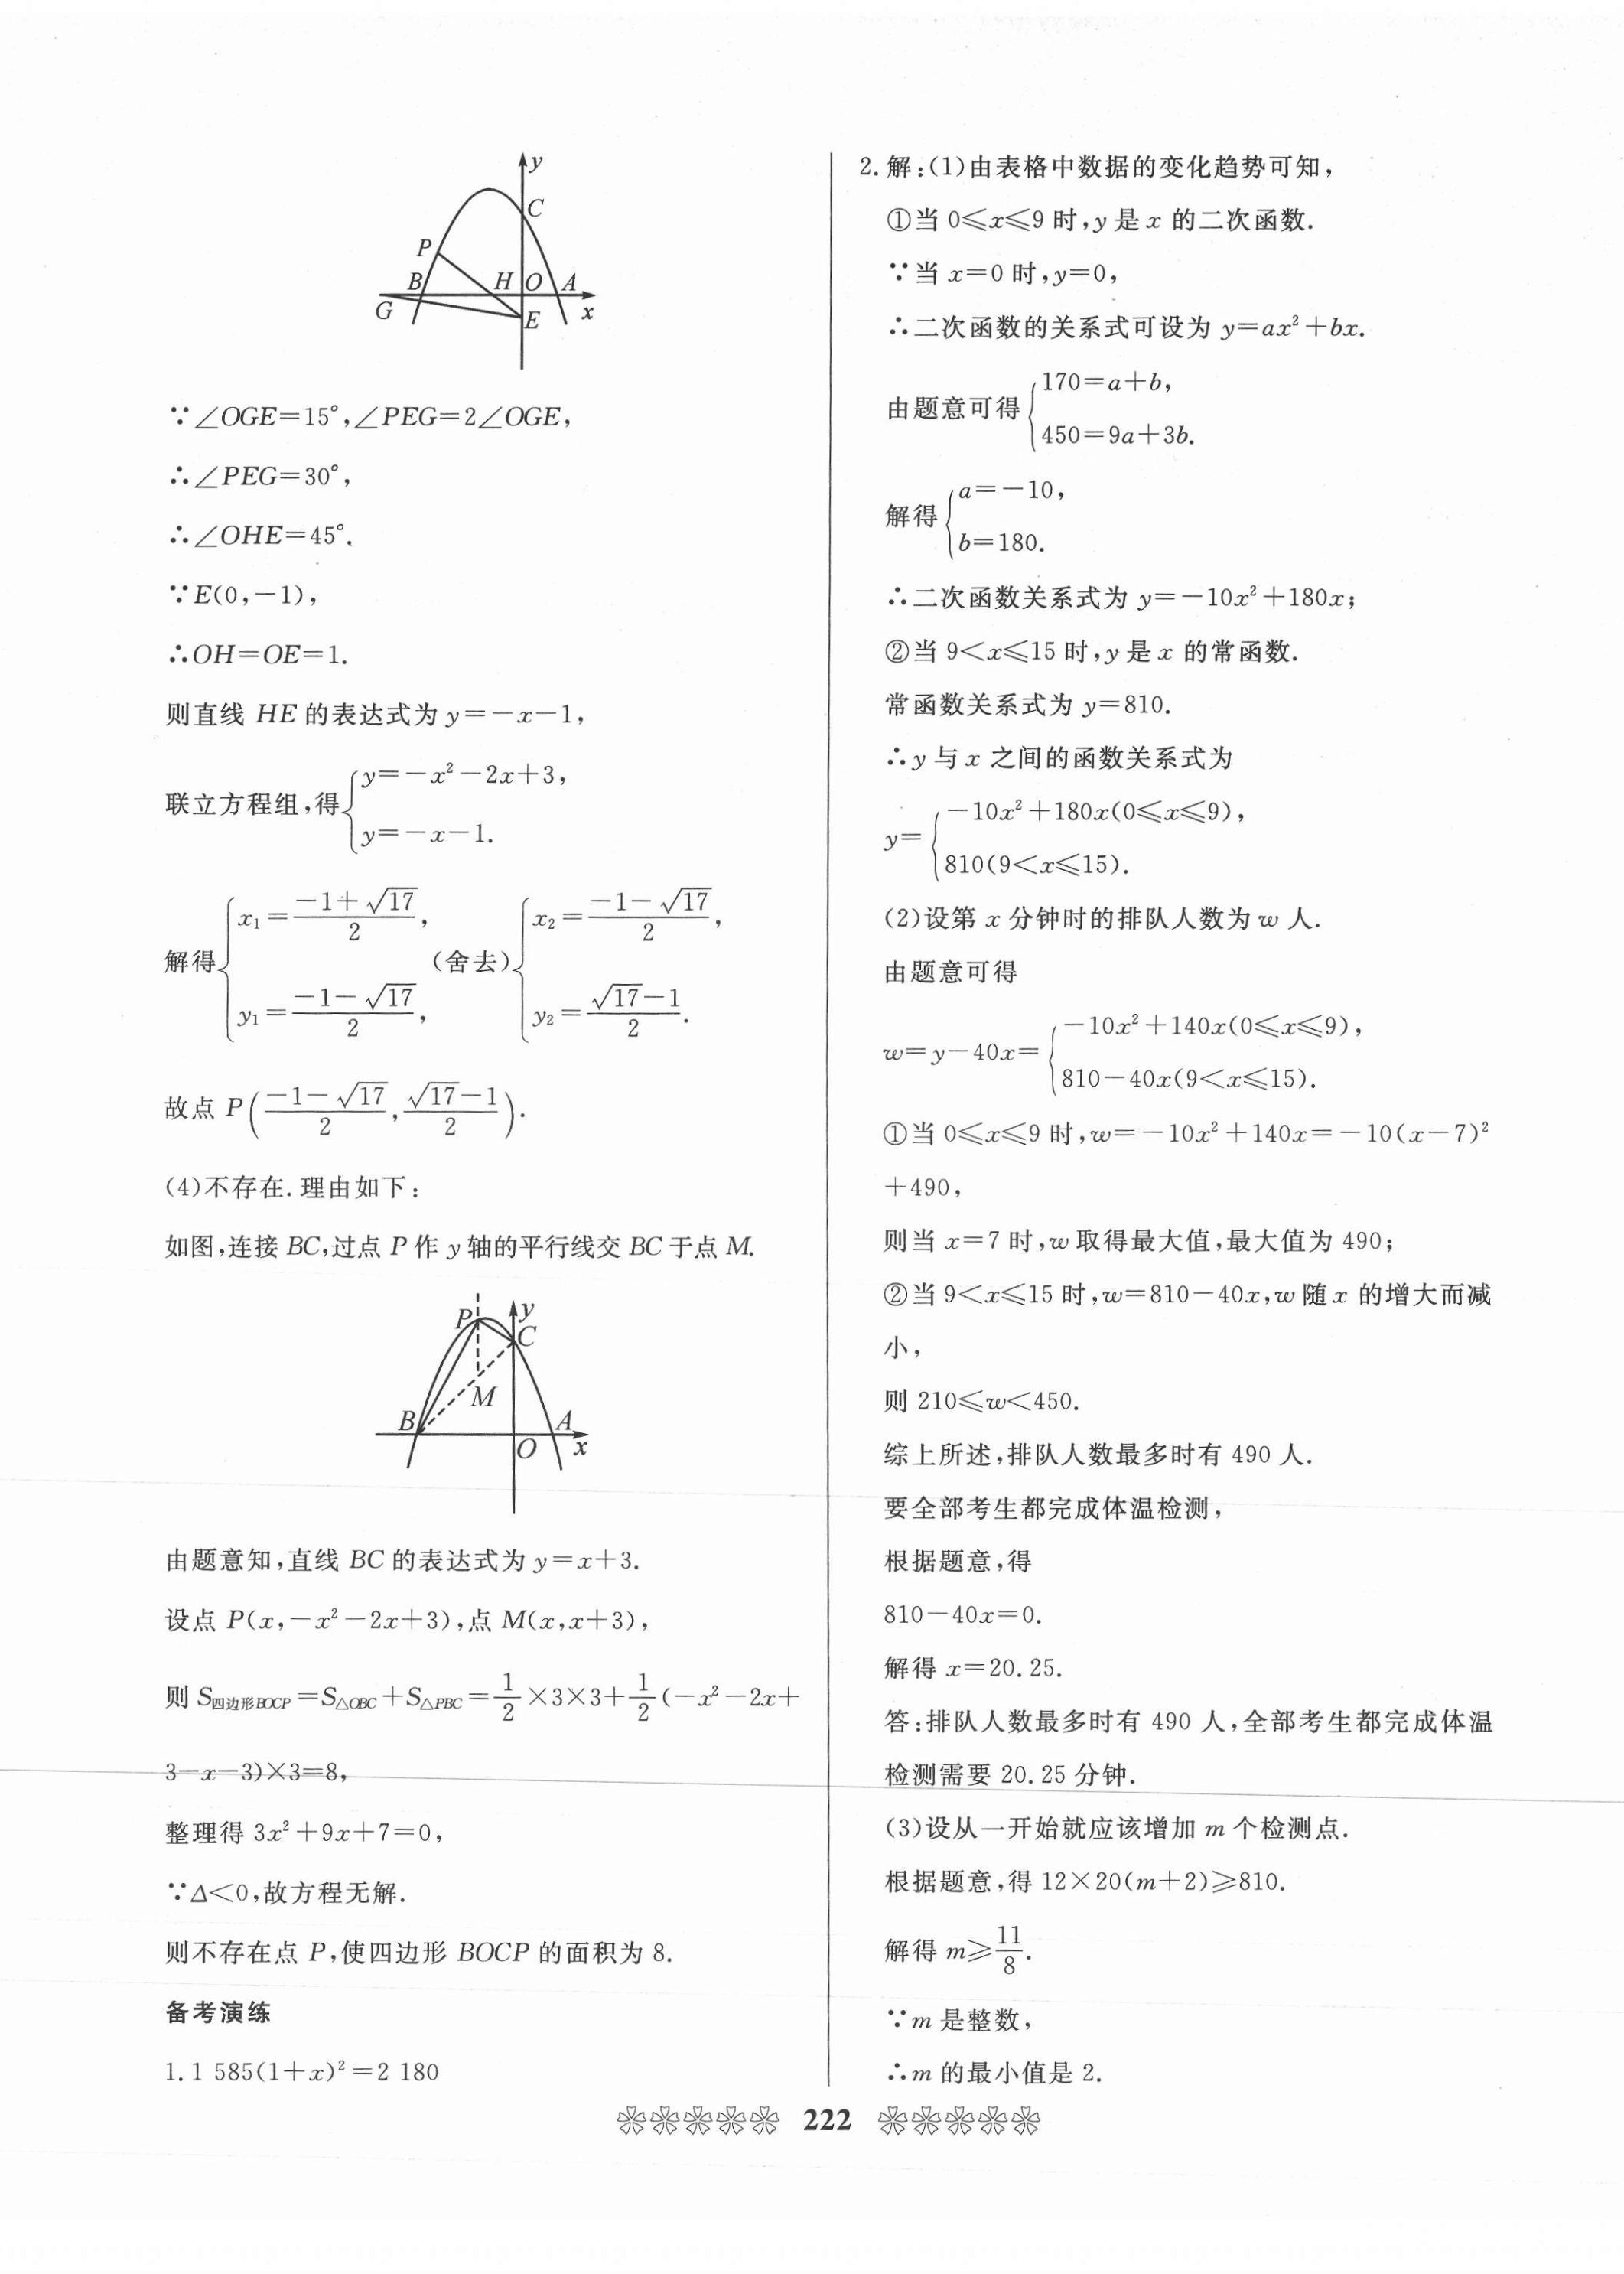 y
C
P
B H O A
G E x
∵∠OGE=15°,∠PEG=2∠OGE,
∴∠PEG=30°,
∴∠OHE=45°.
∵E(0,-1),
∴OH=OE=1.
则直线 HE 的表达式为 y=-x-1,
联立方程组,得{y=-x²-2x+3,
y=-x-1.
解得{x₁=(-1+√17)/2, y₁=(-1-√17)/2, (舍去){x₂=(-1-√17)/2, y₂=(√17-1)/2.
故点 P((-1-√17)/2,(√17-1)/2).
(4)不存在.理由如下:
如图,连接 BC,过点 P 作 y 轴的平行线交 BC 于点 M.
P y
C
M
B A
O x
由题意知,直线 BC 的表达式为 y=x+3.
设点 P(x,-x²-2x+3),点 M(x,x+3),
则 S四边形BOCP=S△OBC+S△PBC=1/2×3×3+1/2(-x²-2x+
3-x-3)×3=8,
整理得 3x²+9x+7=0,
∵Δ<0,故方程无解.
则不存在点 P,使四边形 BOCP 的面积为 8.
备考演练
1.1 585(1+x)²=2 180
2.解:(1)由表格中数据的变化趋势可知,
①当 0≤x≤9 时,y 是 x 的二次函数.
∵当 x=0 时,y=0,
∴二次函数的关系式可设为 y=ax²+bx.
由题意可得{170=a+b,
450=9a+3b.
解得{a=-10,
b=180.
∴二次函数关系式为 y=-10x²+180x;
②当 9<x≤15 时,y 是 x 的常函数.
常函数关系式为 y=810.
∴y 与 x 之间的函数关系式为
y={-10x²+180x(0≤x≤9),
810(9<x≤15).
(2)设第 x 分钟时的排队人数为 w 人.
由题意可得
w=y-40x={-10x²+140x(0≤x≤9),
810-40x(9<x≤15).
①当 0≤x≤9 时,w=-10x²+140x=-10(x-7)²
+490,
则当 x=7 时,w 取得最大值,最大值为 490;
②当 9<x≤15 时,w=810-40x,w 随 x 的增大而减
小,
则 210≤w<450.
综上所述,排队人数最多时有 490 人.
要全部考生都完成体温检测,
根据题意,得
810-40x=0.
解得 x=20.25.
答:排队人数最多时有 490 人,全部考生都完成体温
检测需要 20.25 分钟.
(3)设从一开始就应该增加 m 个检测点.
根据题意,得 12×20(m+2)≥810.
解得 m≥11/8.
∵m 是整数,
∴m 的最小值是 2.
222